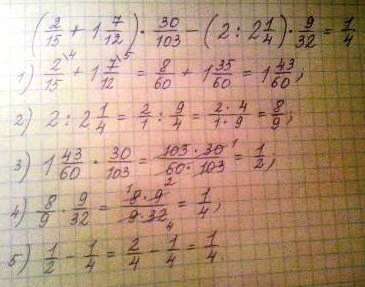 (2/15 + 1 7/12) · 30/103 − (2 : 2 1/4) · 9/32 = 1/4
1) 2/15 \4 + 1 7/12 \5 = 8/60 + 1 35/60 = 1 43/60;
2) 2 : 2 1/4 = 2/1 : 9/4 = 2 · 4/1 · 9 = 8/9;
3) 1 43/60 · 30/103 = 103 · 30 1/60 · 103 = 1/2;
4) 8/9 · 9/32 = 1 8 · 9 2/9 · 32 4 = 1/4;
5) 1/2 − 1/4 = 2/4 − 1/4 = 1/4.